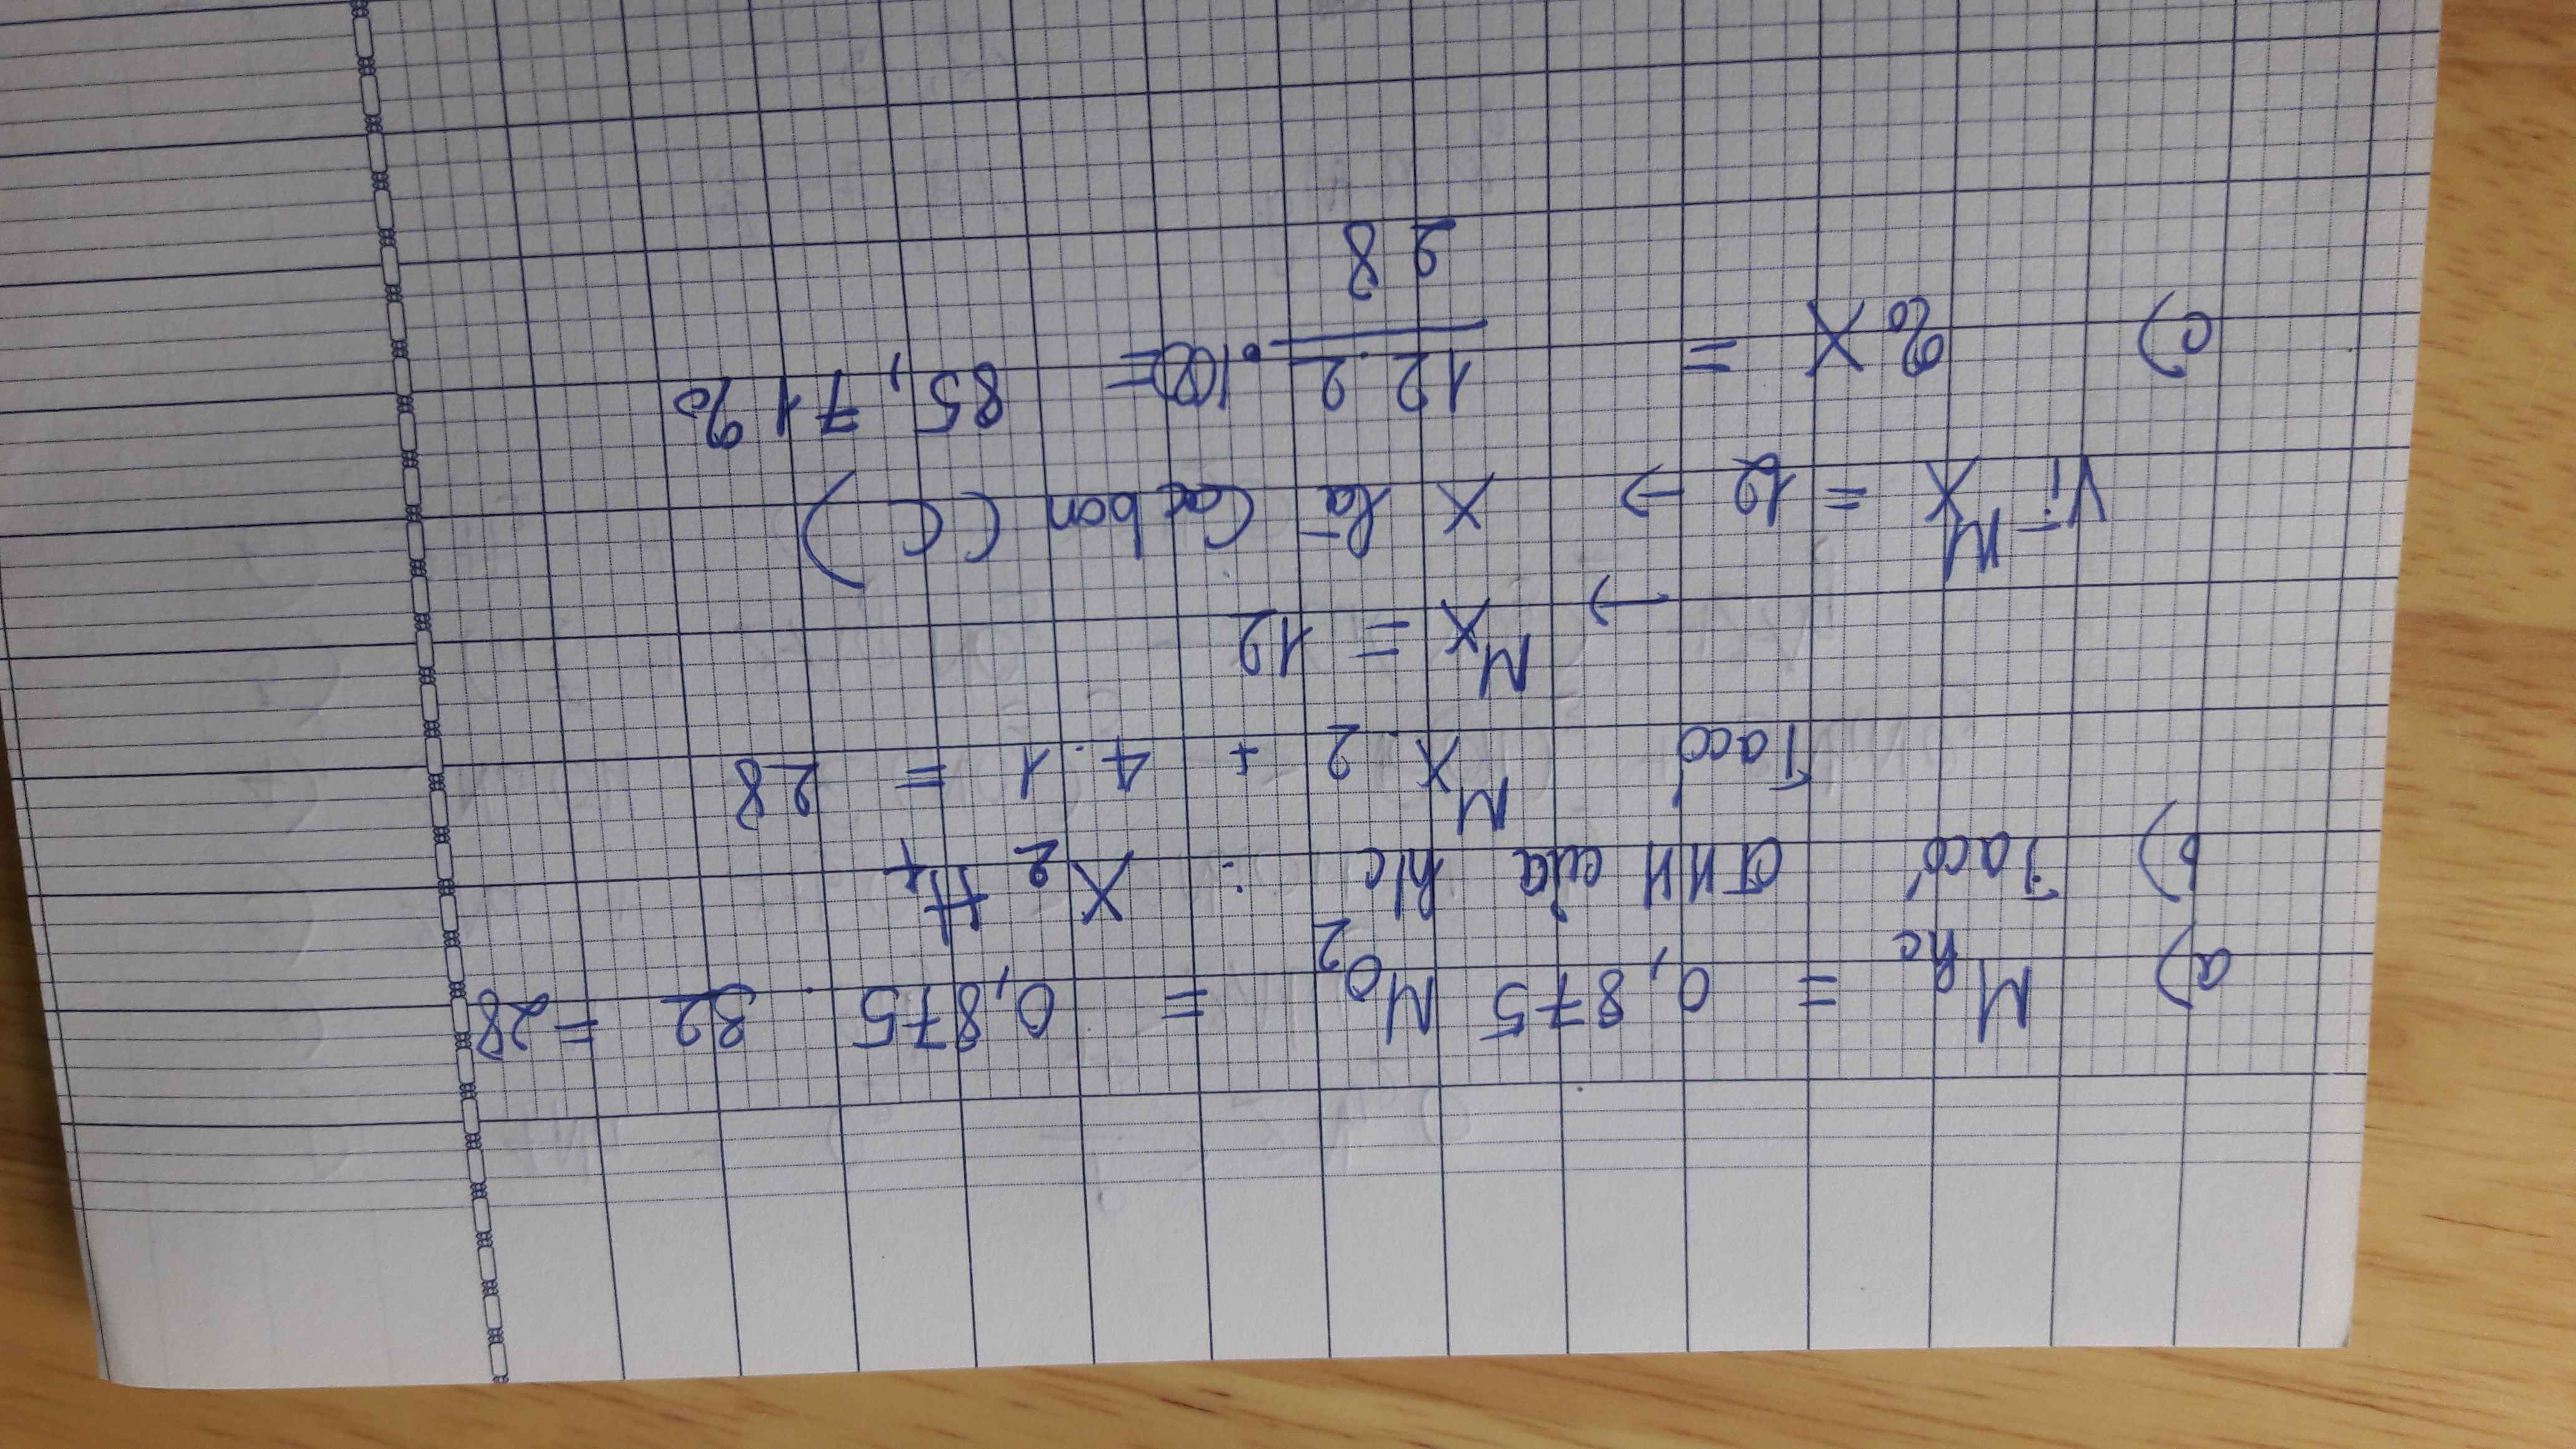 a) Mhc = 0,875 MO2 = 0,875 . 32 = 28
b) Ta có CTHH của h/c : X2H4
Ta có MX . 2 + 4 . 1 = 28
→ MX = 12
Vì MX = 12 → X là Cacbon (C)
c) %X = 12 . 2 / 28 . 100 = 85,71%